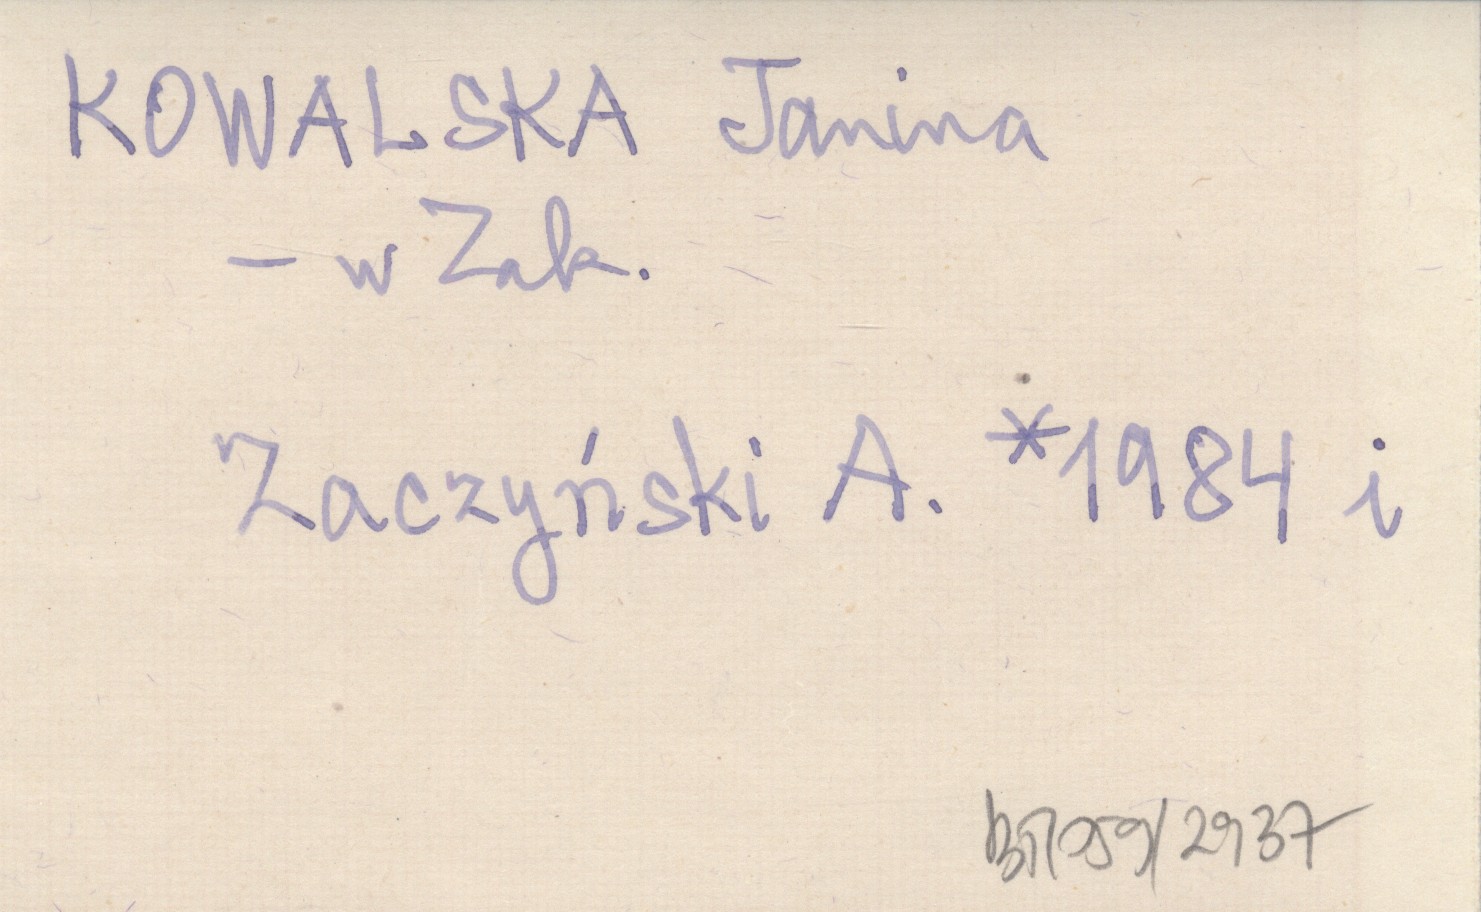 KOWALSKA Janina
– w Zak.
Zaczyński A. *1984 i
/2937